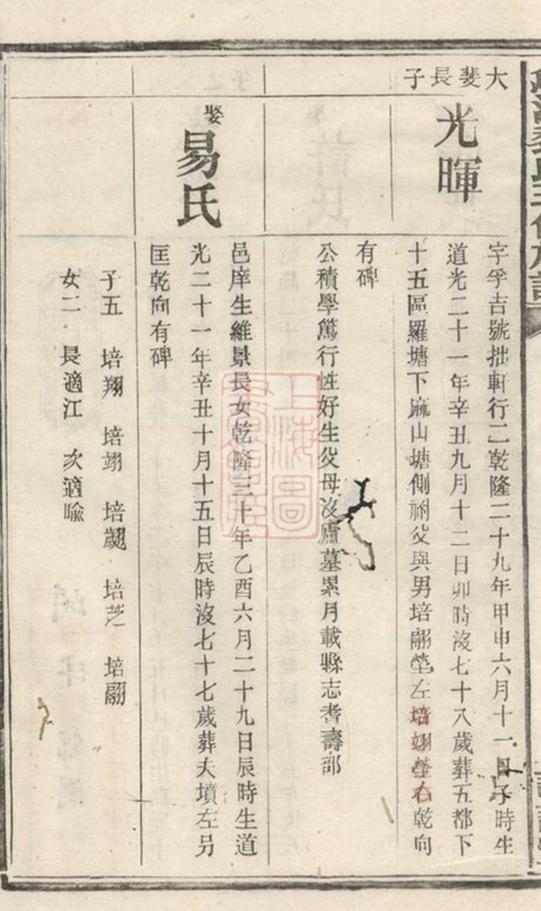 大斐長子
光暉
字孚吉號拙軒行二乾隆二十九年甲申六月十一日子時生
道光二十一年辛丑九月十二日卯時沒七十八歲葬五都下
十五區羅塘下麻山塘側祔父與男培翮塋左培翊塋右乾向
有碑
公積學篤行性好生父母沒廬墓累月載縣志耆壽部
娶
易氏
邑庠生維景長女乾隆三十年乙酉六月二十九日辰時生道
光二十一年辛丑十月十五日辰時沒七十七歲葬夫墳左另
匡乾向有碑
子五 培翔 培翊 培 培芝 培翮
女二 長適江 次適喻